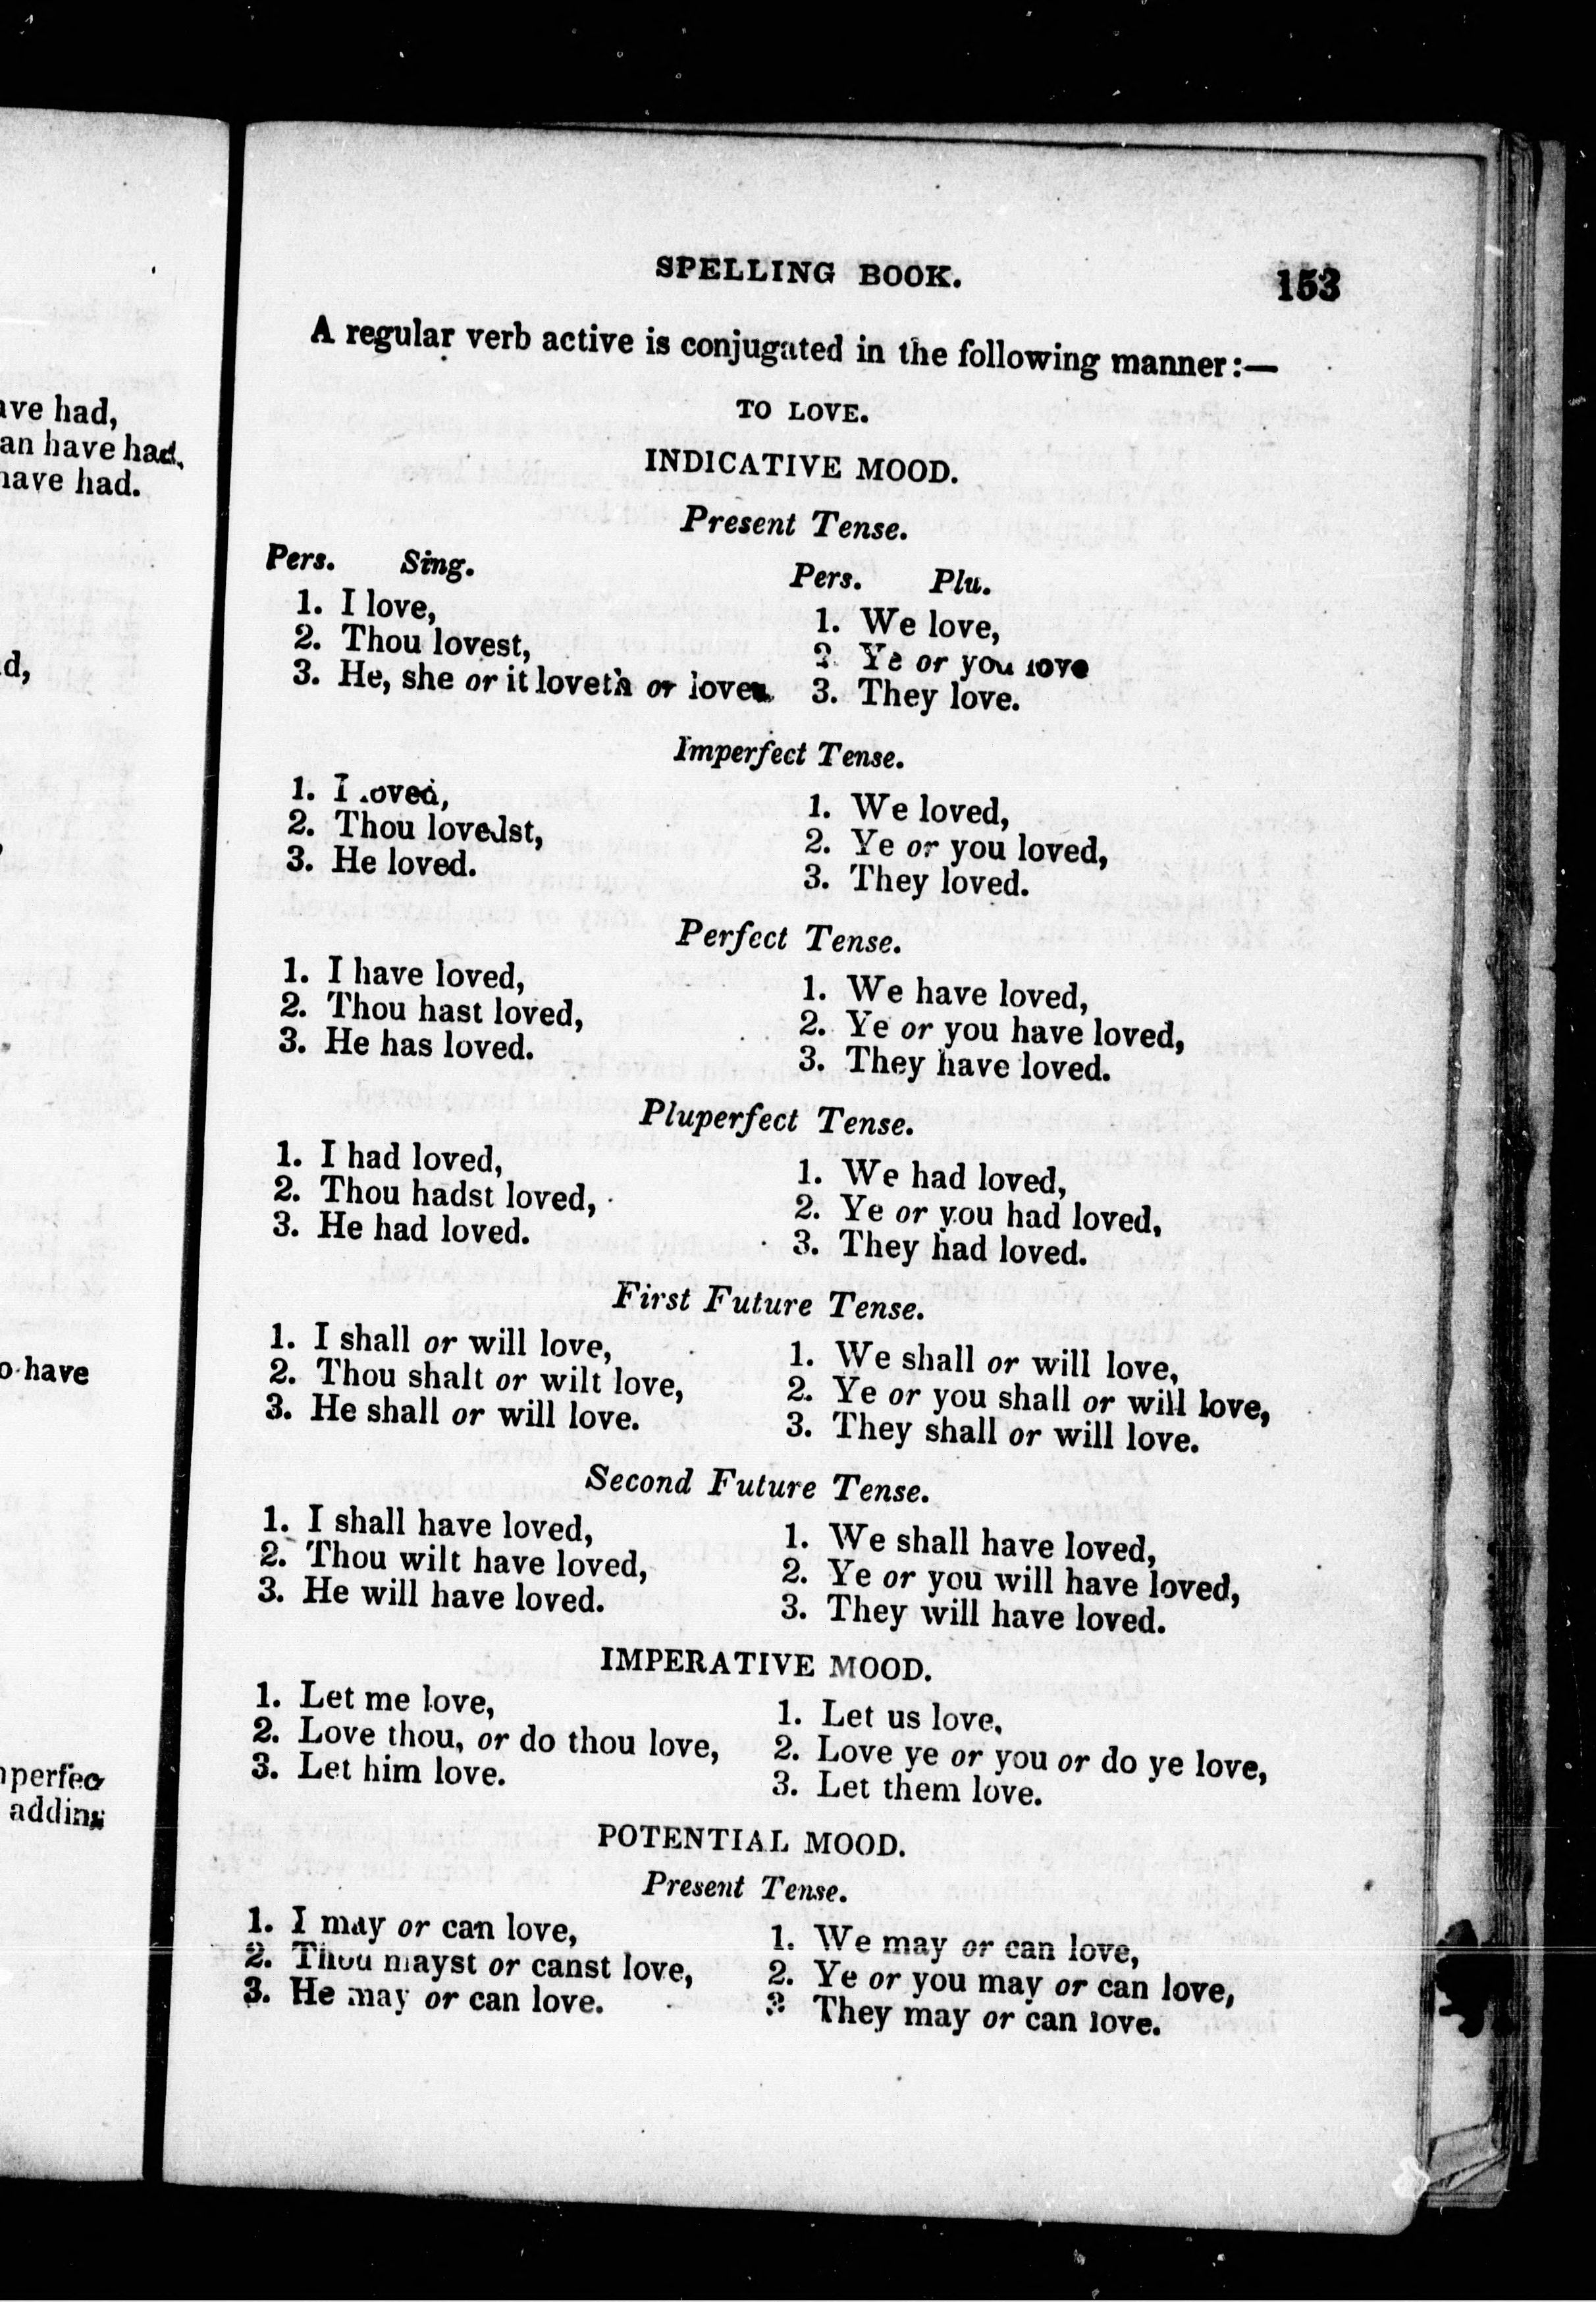 ave had,
an have had,
have had.
d,
o have
perfec
adding
SPELLING BOOK. 153
A regular verb active is conjugated in the following manner:—
TO LOVE.
INDICATIVE MOOD.
Present Tense.
Pers. Sing. Pers. Plu.
1. I love, 1. We love,
2. Thou lovest, 2. Ye or you love
3. He, she or it loveth or loves. 3. They love.
Imperfect Tense.
1. I loved, 1. We loved,
2. Thou lovedst, 2. Ye or you loved,
3. He loved. 3. They loved.
Perfect Tense.
1. I have loved, 1. We have loved,
2. Thou hast loved, 2. Ye or you have loved,
3. He has loved. 3. They have loved.
Pluperfect Tense.
1. I had loved, 1. We had loved,
2. Thou hadst loved, 2. Ye or you had loved,
3. He had loved. 3. They had loved.
First Future Tense.
1. I shall or will love, 1. We shall or will love,
2. Thou shalt or wilt love, 2. Ye or you shall or will love,
3. He shall or will love. 3. They shall or will love.
Second Future Tense.
1. I shall have loved, 1. We shall have loved,
2. Thou wilt have loved, 2. Ye or you will have loved,
3. He will have loved. 3. They will have loved.
IMPERATIVE MOOD.
1. Let me love, 1. Let us love,
2. Love thou, or do thou love, 2. Love ye or you or do ye love,
3. Let him love. 3. Let them love.
POTENTIAL MOOD.
Present Tense.
1. I may or can love, 1. We may or can love,
2. Thou mayst or canst love, 2. Ye or you may or can love,
3. He may or can love. 3 They may or can love.